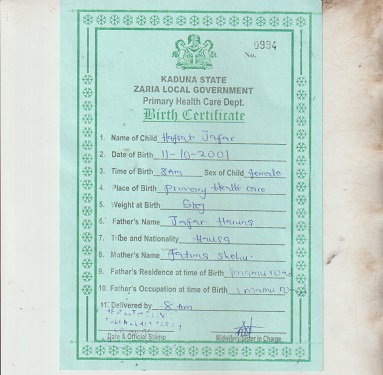 0994
No.
KADUNA STATE
ZARIA LOCAL GOVERNMENT
Primary Health Care Dept.
Birth Certificate
1. Name of Child Hafsat Jafar
2. Date of Birth 11-10-2001
3. Time of Birth 8am Sex of Child female
4. Place of Birth primary Health care
5. Weight at Birth
6. Father's Name Jafar Haruna
7. Tribe and Nationality Hausa
8. Mother's Name Fatima Shehu
9. Father's Residence at time of Birth
10. Father's Occupation at time of Birth
11. Delivered by 8am
Date & Official Stamp Midwifery/Sister in Charge